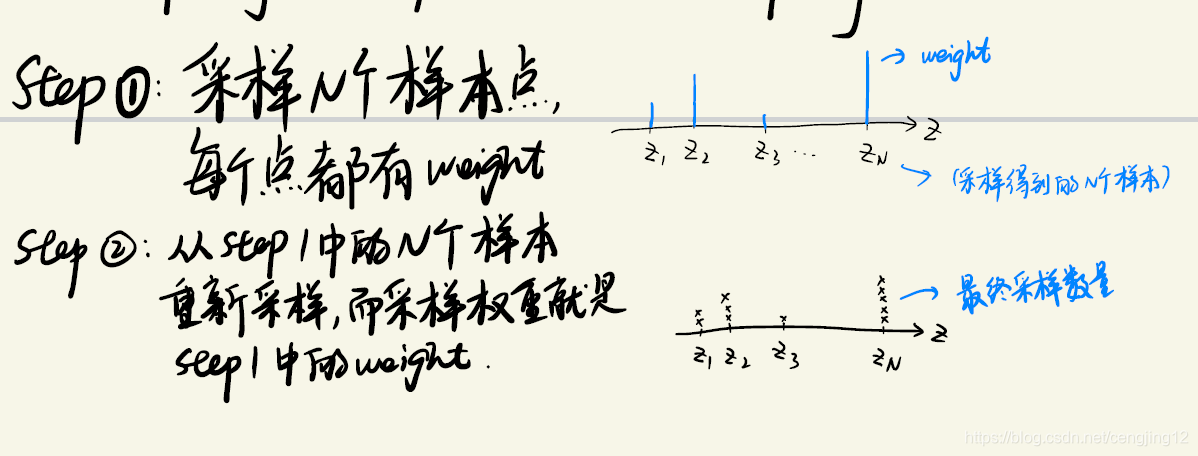 Step ①: 采样N个样本点,
每个点都有weight
→ weight
z
z₁ z₂ z₃ ... z_N
→ (采样得到的N个样本)
Step ②: 从step1中的N个样本
重新采样,而采样权重就是
step1中的weight.
→ 最终采样数量
z
z₁ z₂ z₃ z_N
https://blog.csdn.net/cengjing12